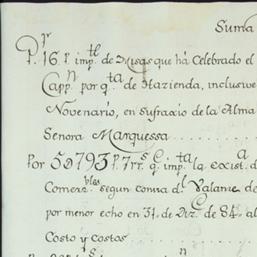 Suma
P. 16. p.r imp.tl de Misas que há Celebrado el
Capp.n por q.ta de Hazienda, inclusive
Novenário, en sufraxio de la Alma
Senora Marquessa
Por 5D793 P.s 7 rr.s q.e imp.ta la exist.a d
Comer.bles segun consta d.l Valance de
por menor echo en 31. de Diz.e de 84. al
Costo y costos